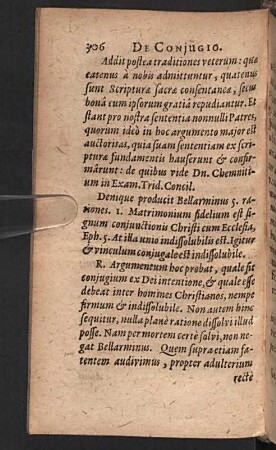 306 DE CONJUGIO.
Addit postea traditiones veterum: quæ
eatenus à nobis admittuntur, quatenus
sunt Scripturæ sacræ consentaneæ, secus
bonâ cum ipsorum gratiâ repudiantur. Et
stant pro nostra sententia nonnulli Patres,
quorum ideò in hoc argumento major est
auctoritas, quia suam sententiam ex scri-
pturæ fundamentis hauserunt & confir-
mârunt: de quibus vide Dn. Chemniti-
um in Exam. Trid. Concil.
Denique producit Bellarminus 5. ra-
tiones. 1. Matrimonium fidelium est si-
gnum conjunctionis Christi cum Ecclesia,
Eph. 5. At illa unio indissolubilis est. Igitur
& vinculum conjugale est indissolubile.
R. Argumentum hoc probat, quale sit
conjugium ex Dei intentione, & quale esse
debeat inter homines Christianos, nempe
firmum & indissolubile. Non autem hinc
sequitur, nulla planè ratione dissolvi illud
posse. Nam per mortem certè solvi, non ne-
gat Bellarminus. Quem supra etiam fa-
tentem audivimus, propter adulterium
rectè